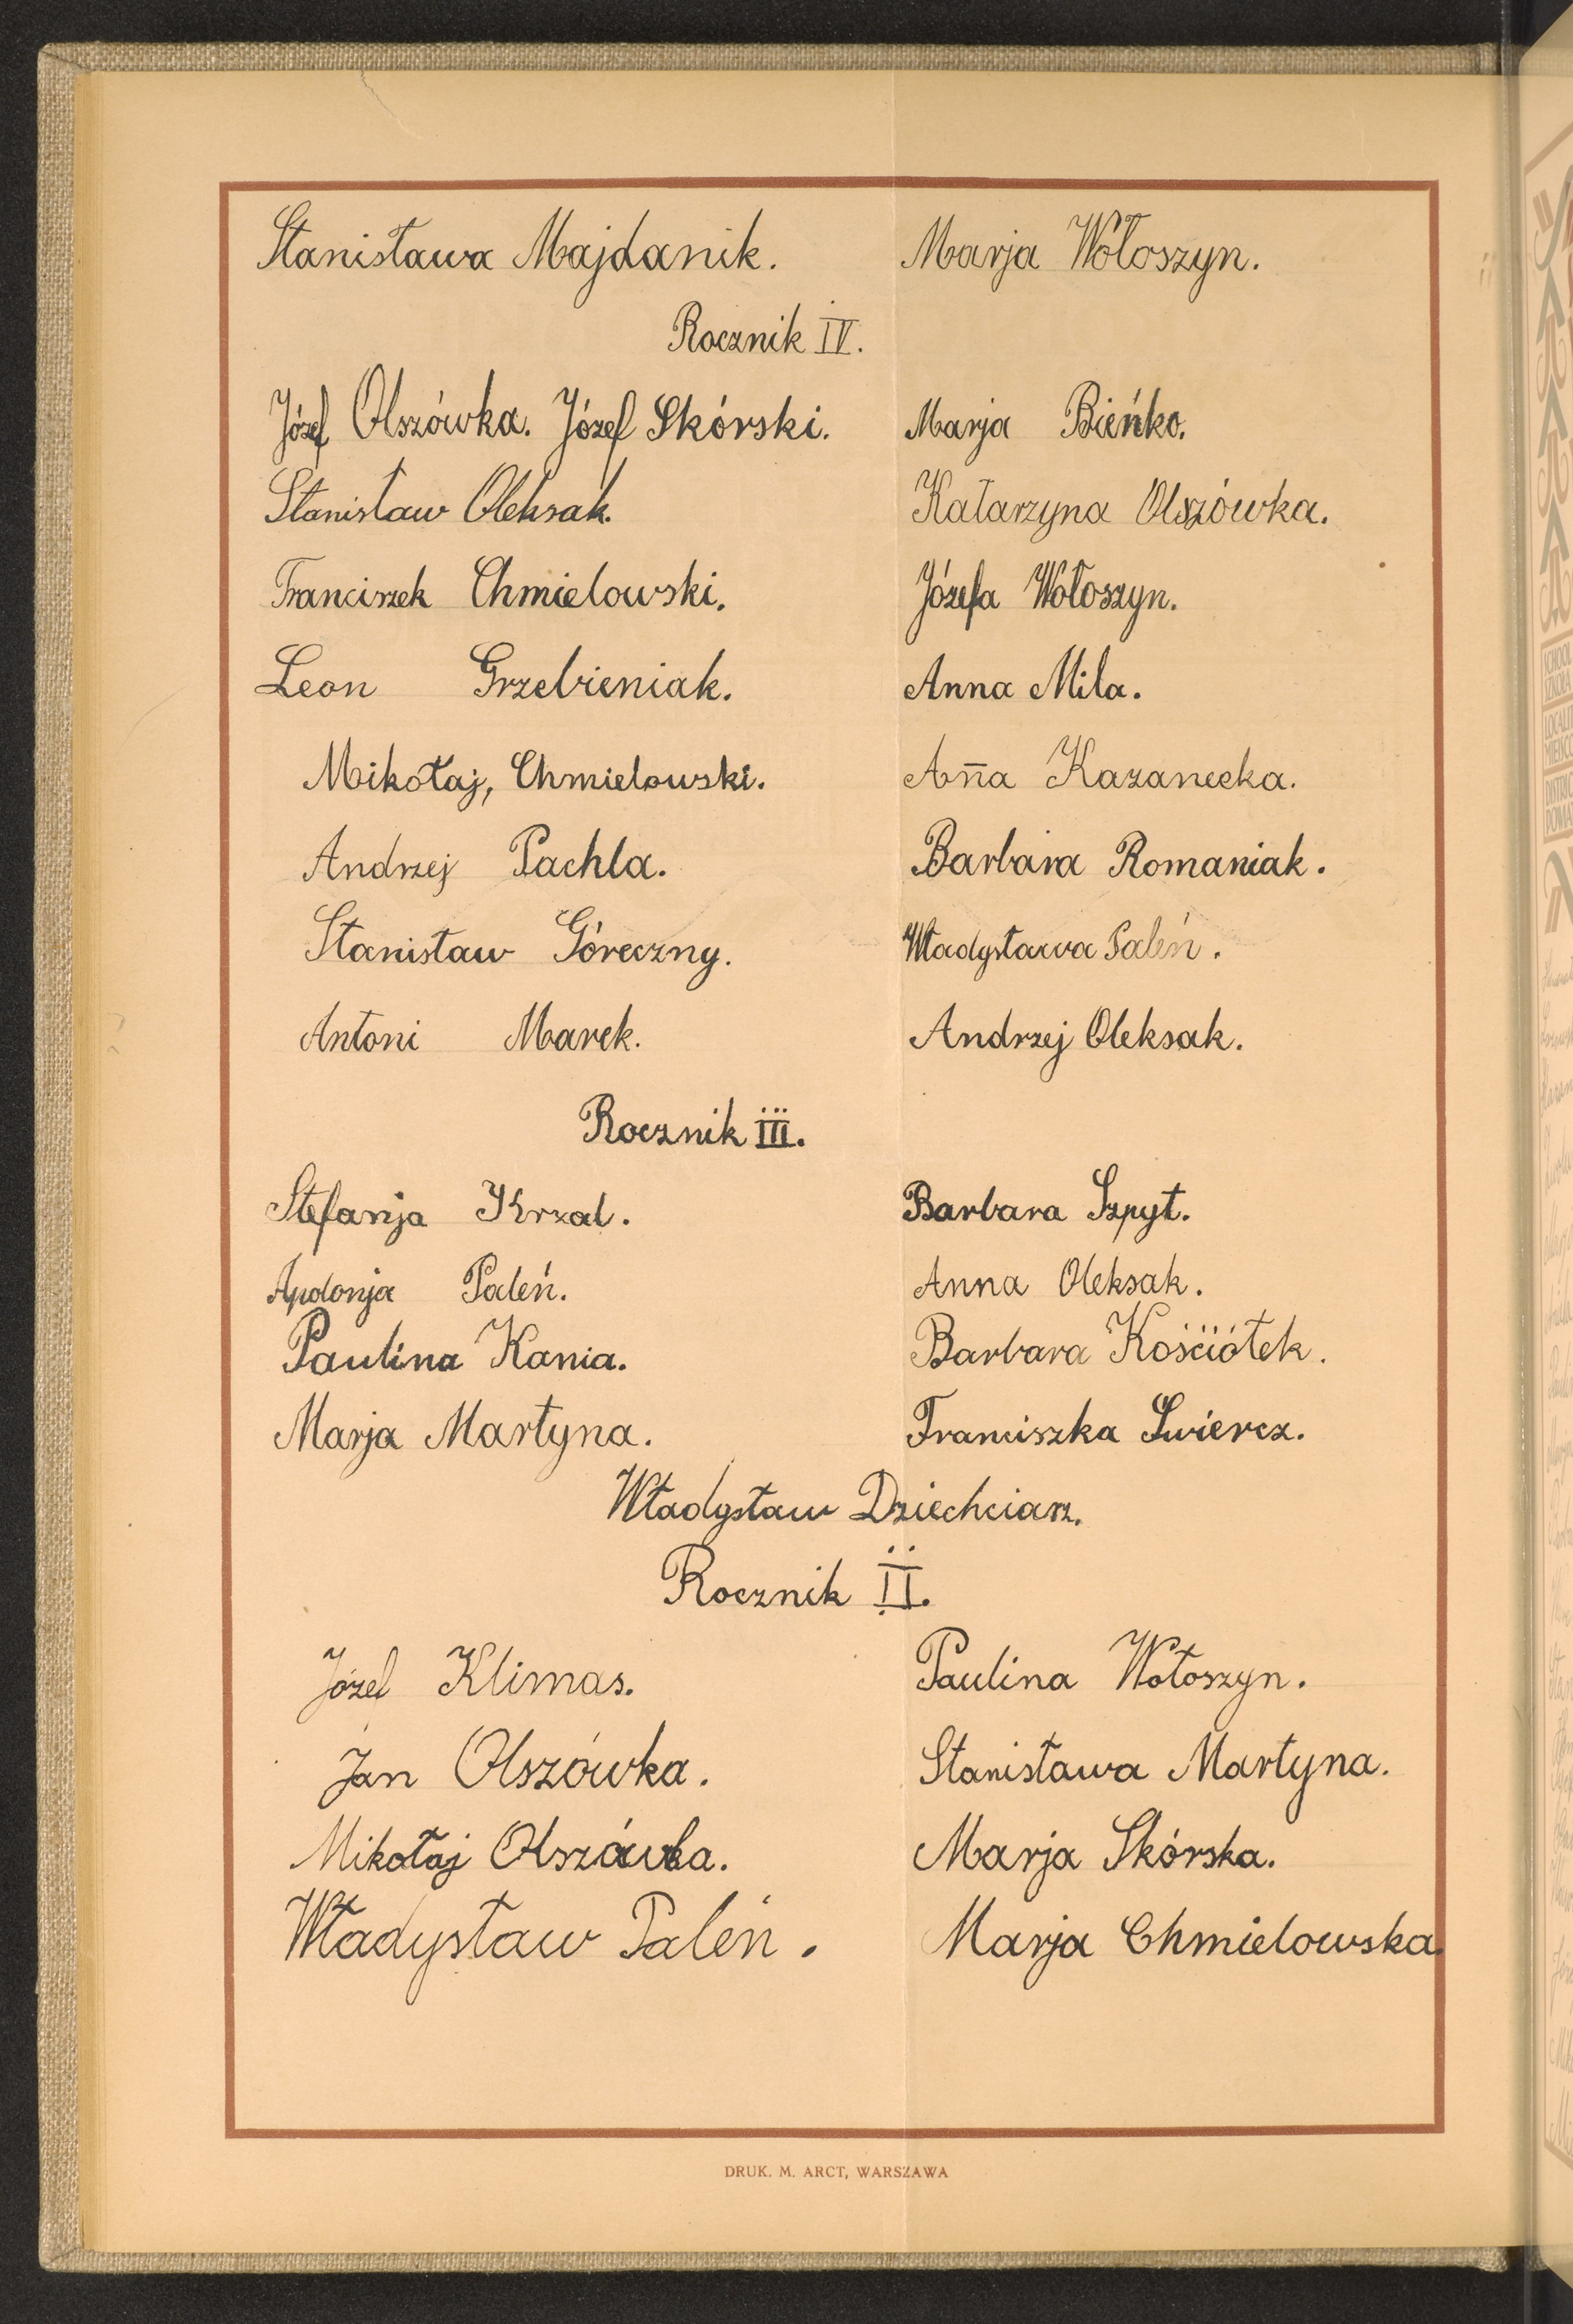 Stanisława Majdanik. Marja Wołoszyn.
Rocznik IV.
Józef Olszówka. Józef Skórski. Marja Bieńko.
Stanisław Oleksak. Katarzyna Olszówka.
Franciszek Chmielowski. Józefa Wołoszyn.
Leon Grzebieniak. Anna Mila.
Mikołaj, Chmielowski. Ann̄a Kazanecka.
Andrzej Pachla. Barbara Romaniak.
Stanisław Góreczny. Władysława Paleń.
Antoni Marek. Andrzej Oleksak.
Rocznik III.
Stefanja Krzal. Barbara Szpyt.
Apolonja Paleń. Anna Oleksak.
Paulina Kania. Barbara Kościółek.
Marja Martyna. Franciszka Świercz.
Władysław Dziechciarz.
Rocznik II.
Józef Klimas. Paulina Wołoszyn.
Jan Olszówka. Stanisława Martyna.
Mikołaj Olszówka. Marja Skórska.
Władysław Paleń. Marja Chmielowska.
DRUK. M. ARCT, WARSZAWA